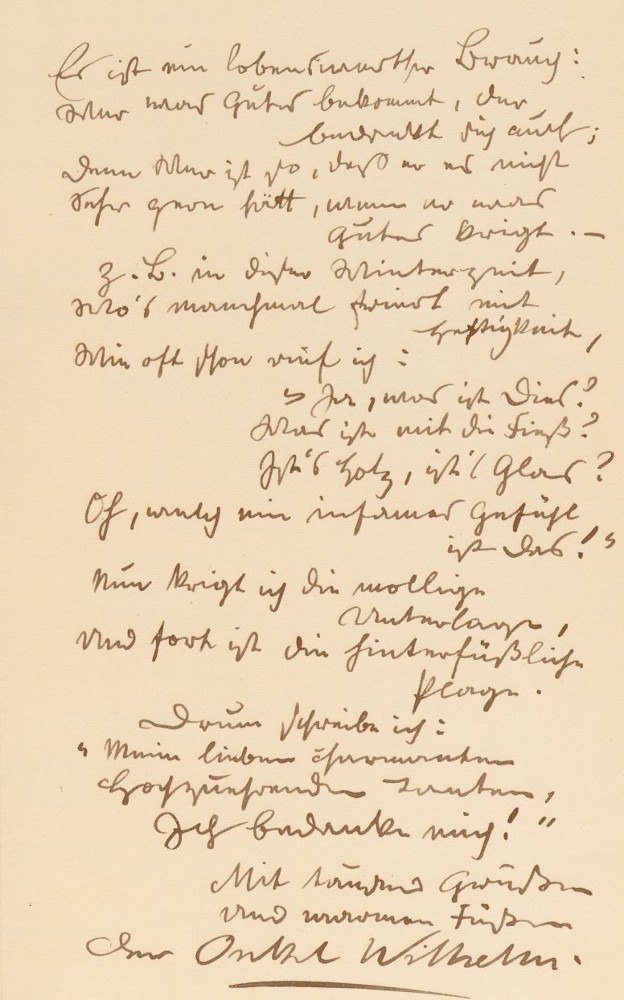 Es ist ein lobenswerther Brauch:
Wer was Gutes bekommt, der
bedankt sich auch;
Denn Wer ist so, daß er es nicht
Sehr gern hätt, wenn er was
Gutes krigt. –
Z. B. in dieser Winterzeit,
Wo's manchmal friert mit
Heftigkeit,
Wie oft schon rief ich:
"Ja, was ist Dies?
Was ist mit die Fieß?
Ist's Holz, ist's Glas?
Oh, welch ein infames Gefühl
ist Das!"
Nun krigt ich die mollige
Unterlage,
Und fort ist die hinterfüßliche
Plage.
Drum schreibe ich:
"Meine lieben charmanten
Hochzuehrenden Tanten,
Ich bedanke mich!"
Mit tausend Grüßen
und warmen Füßen
der Onkel Wilhelm.